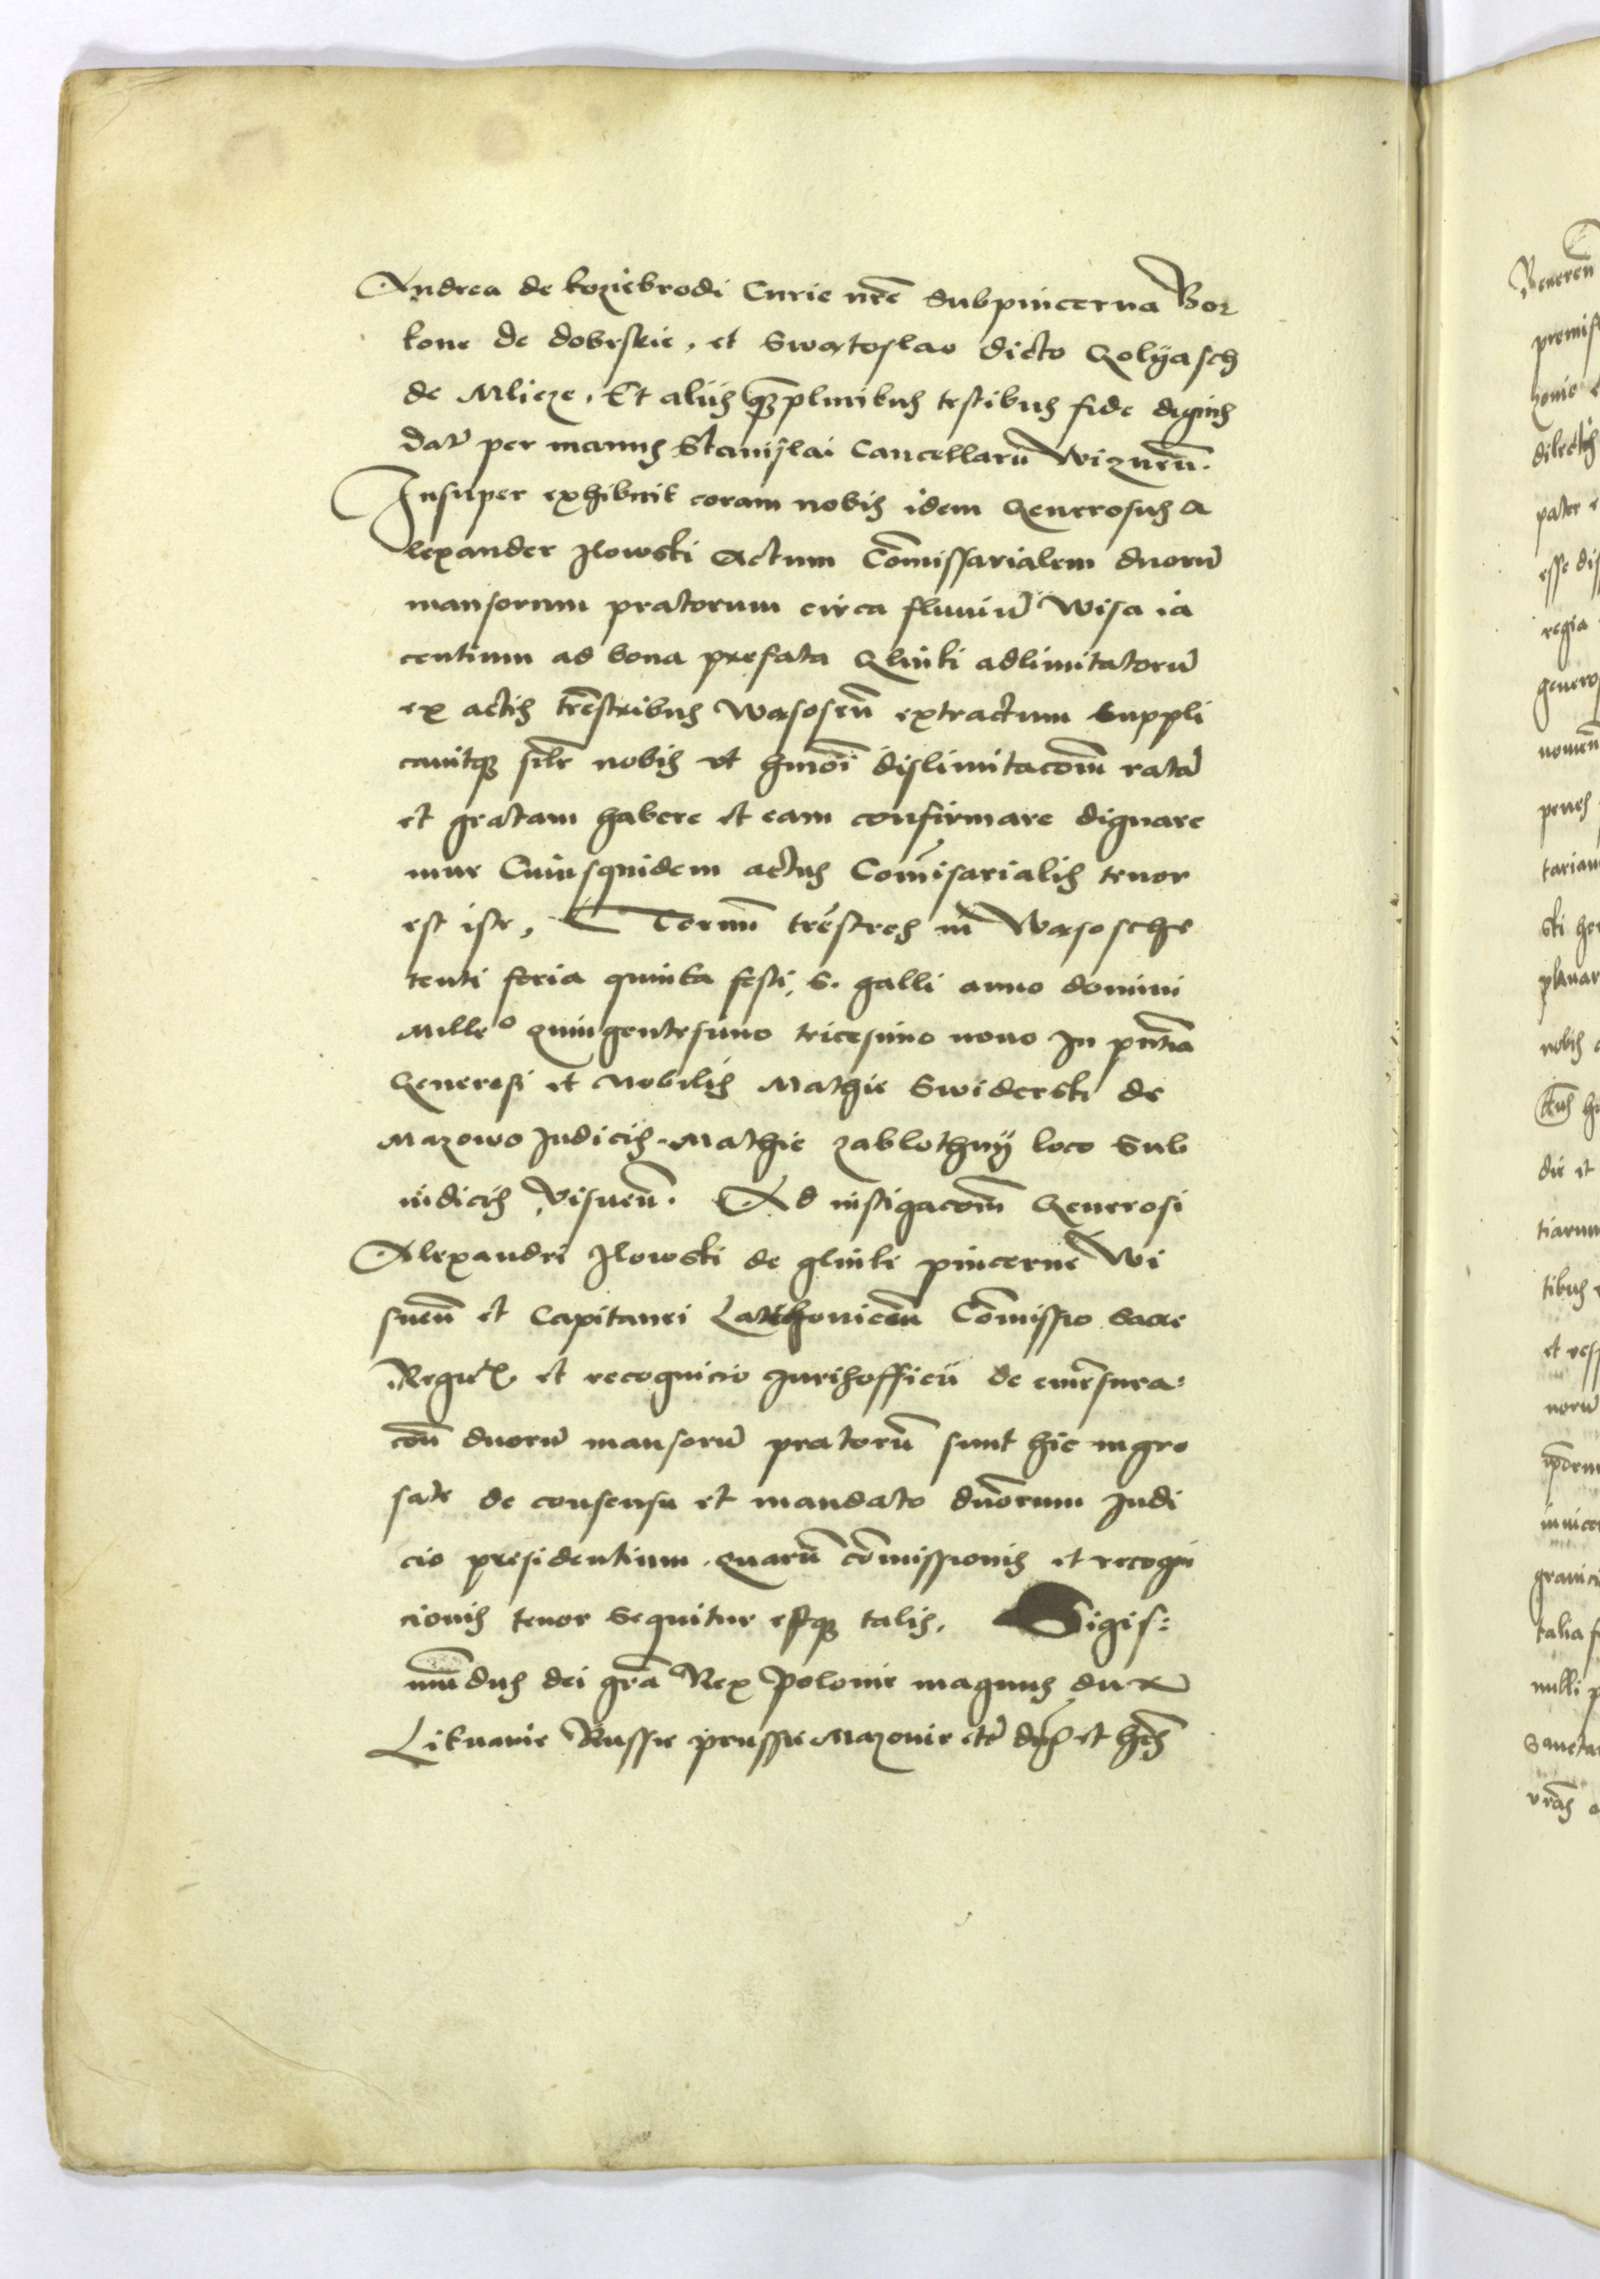 Andrea de koziebrodi Curie nr̄e Subpincerna Bor
kone de dobrskie, et Swatoslao dicto Golyasch
de Mlicze, Et aliis q̄pluribus testibus fide dignis
dat̄ per manus Stanislai Cancellarii Wiznen̄.
Insuper exhibuit coram nobis idem Generosus A
lexander Ilowski Actum Com̄issarialem duorū
mansorum pratorum circa fluuiū Wisa ia
centium ad bona prefata Glinki adlimitatorū
ex actis trēstribus Wasosen̄ extractum Suppli
cauitq; sil̄r nobis vt hmōi dislimitacom̄ ratā
et gratam habere et eam confirmare dignare
mur Cuiusquidem actus Com̄isarialis tenor
est iste, Termi trēstres in Wasosche
tenti feria quinta festi, S. galli anno domini
Mille⁰ quingentesimo tricesimo nono In pn̄tia
Generosi et Nobilis Mathie Swiderski de
Mazowo Iudicis. Mathie zablothny loco Sub
iudicis Visnen̄. Ad instigacom̄ Generosi
Alexandri Ilowski de glinki pincerne Wi
snen̄ et Capitanei Com̄issio Sacre
et recognicio Iurisofficii de emēsura:
con̄ duorū mansorū pratorū sunt hic ingro
sate de consensu et mandato dn̄orum Iudi
cio presidentium. Quarū com̄issionis et recogni
cionis tenor Sequitur estq; talis. Sigis:
mūdus dei grā Rex Polonie magnus dux
Lituanie Russie prussie Mazouie etc̄ dn̄s et hēs

Reueren
premiss
dilectis
pater e
esse dis
regia
generos
nomen
penes
tarian
ski her
planar
nobis
die et
tiarum
tibus
et ress
norū
grauici
talia f
nulli p
Sancta